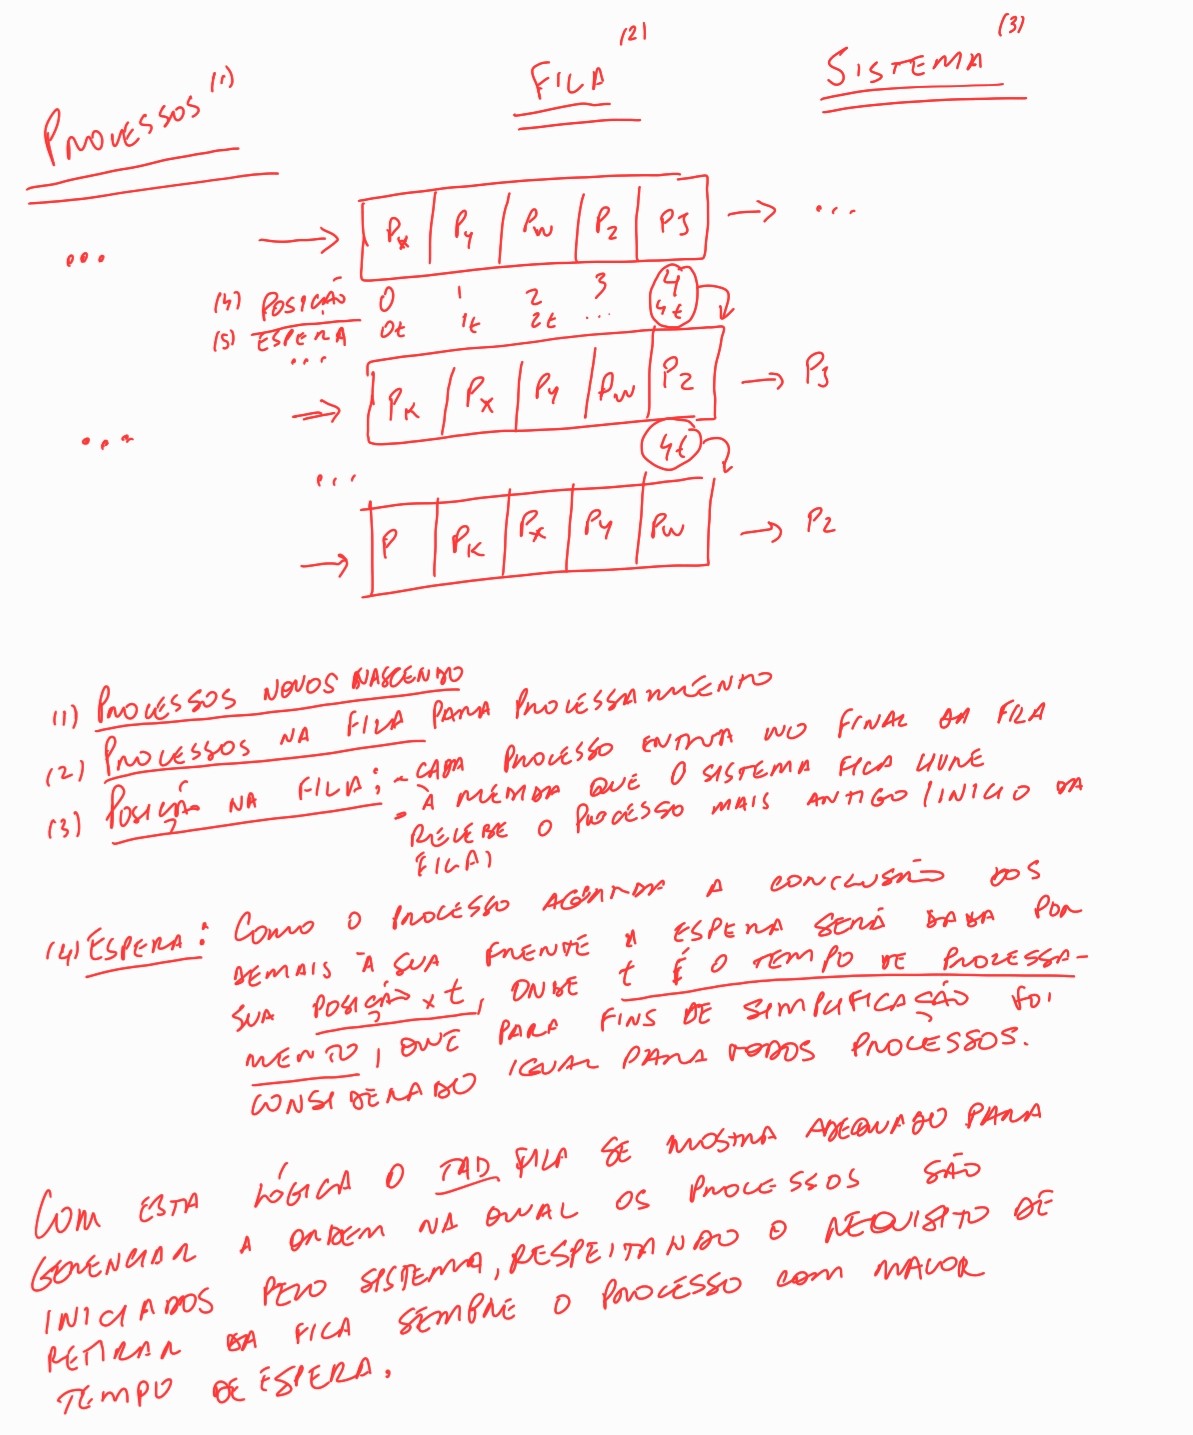 PROCESSOS (1)
FILA (2)
SISTEMA (3)
... → Px Py Pw Pz PJ → ...
(4) POSIÇÃO 0 1 2 3 4
(5) ESPERA 0t 1t 2t ... 4t
...
... → PK Px Py Pw Pz → PJ
4t
...
→ P PK Px Py Pw → Pz
(1) PROCESSOS NOVOS NASCENDO
(2) PROCESSOS NA FILA PARA PROCESSAMENTO
(3) POSIÇÃO NA FILA: - CADA PROCESSO ENTRA NO FINAL DA FILA
- À MEDIDA QUE O SISTEMA FICA LIVRE
RECEBE O PROCESSO MAIS ANTIGO (INICIO DA
FILA)
(4) ESPERA: COMO O PROCESSO AGUARDA A CONCLUSÃO DOS
DEMAIS À SUA FRENTE A ESPERA SERÁ DADA POR
SUA POSIÇÃO x t, ONDE t É O TEMPO DE PROCESSA-
MENTO, QUE PARA FINS DE SIMPLIFICAÇÃO FOI
CONSIDERADO IGUAL PARA TODOS PROCESSOS.
COM ESTA LÓGICA O TAD FILA SE MOSTRA ADEQUADO PARA
GERENCIAR A ORDEM NA QUAL OS PROCESSOS SÃO
INICIADOS PELO SISTEMA, RESPEITANDO O REQUISITO DE
RETIRAR DA FILA SEMPRE O PROCESSO COM MAIOR
TEMPO DE ESPERA.